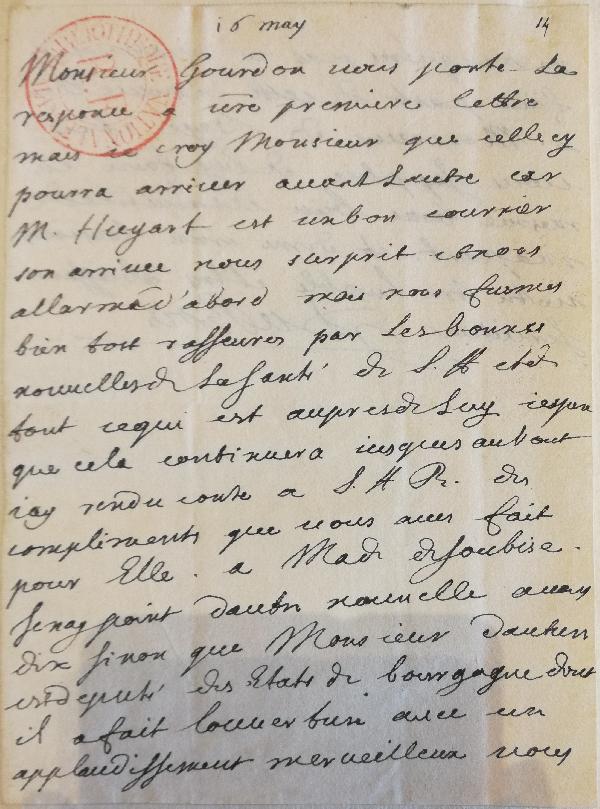 16 may
14
Monsieur Gourdon vous porte La
responce a vre premiere lettre
mais ie croy Monsieur que celle cy
pourra arriver avant Lautre car
M. Huyart est un bon courrier
son arrivee nous surprit et nous
allarma d'abord mais nous fusmes
bien tost rasseures par Les bonnes
nouvelles de La santé de S. A et de
tout ce qui est aupres de Luy iespere
que cela continuera iusques au bout
iay rendu conte a S. A R. des
compliments que vous aves fait
pour Elle. a Made de soubise.
Je nay point dautre nouvelle a vous
dire sinon que Monsieur
est deputé des Etats de bourgogne dont
il a fait louvertur avec un
applaudissement merveilleux nous